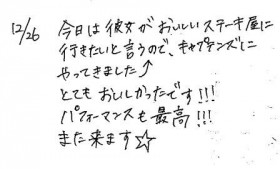 12/26 今日は彼女がおいしいステーキ屋に
行きたいと言うので、キャプテンズに
やってきました⤴
とてもおいしかったです!!!
パフォーマンスも最高!!!
また来ます☆